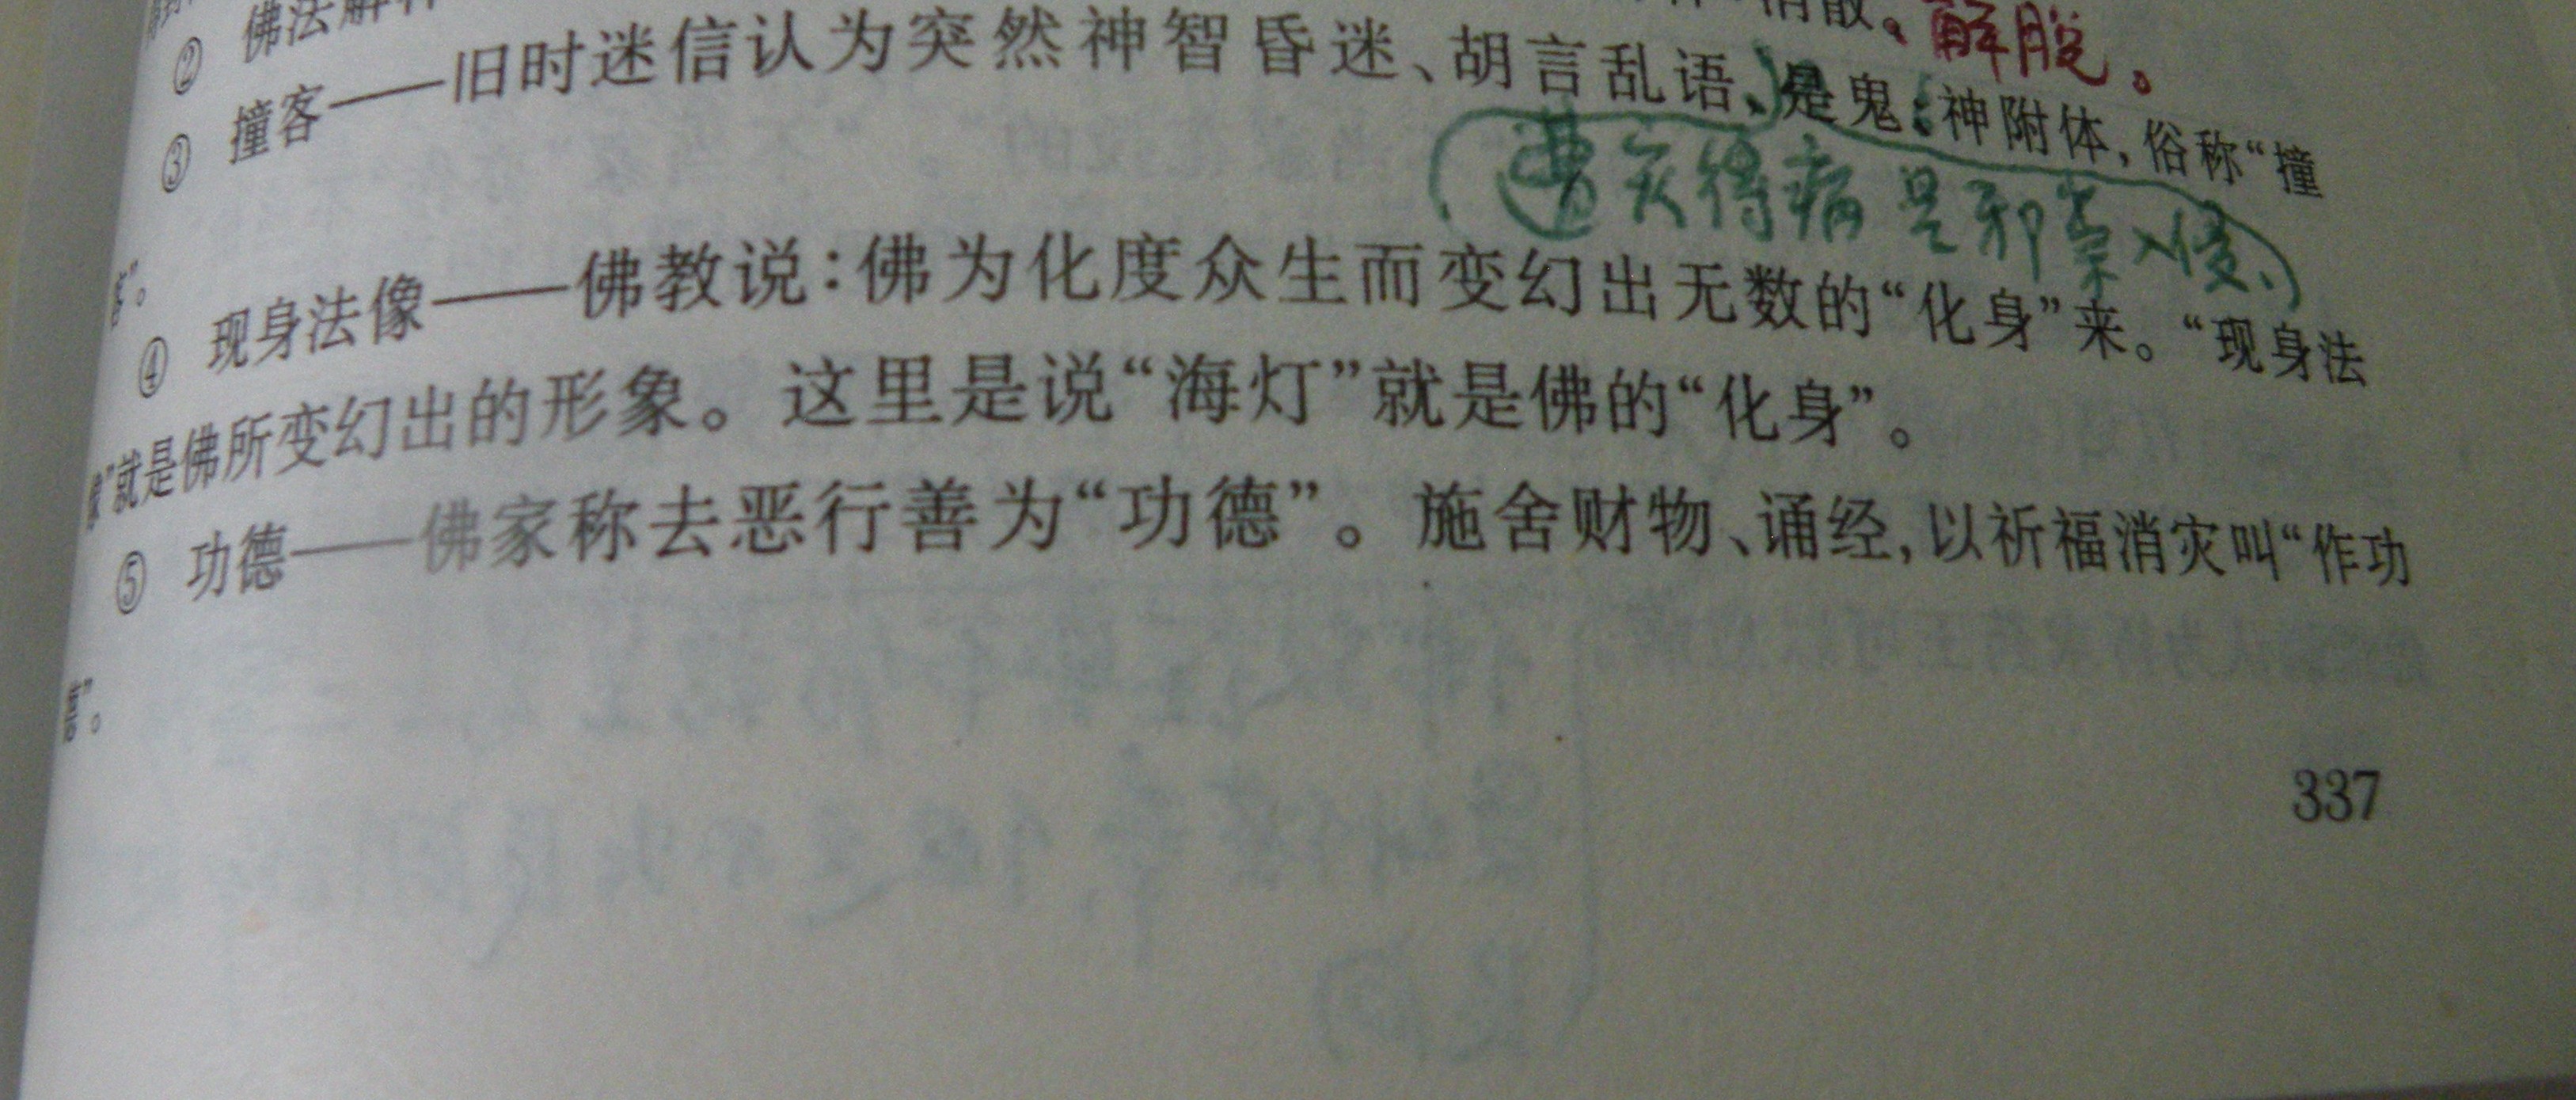 ② 佛法解释
消散。解脱。
③ 撞客——旧时迷信认为突然神智昏迷、胡言乱语、是鬼神附体，俗称“撞
遭灾得病是邪祟入侵、
客”。
④ 现身法像——佛教说：佛为化度众生而变幻出无数的“化身”来。“现身法
像”就是佛所变幻出的形象。这里是说“海灯”就是佛的“化身”。
⑤ 功德——佛家称去恶行善为“功德”。施舍财物、诵经，以祈福消灾叫“作功
德”。
337